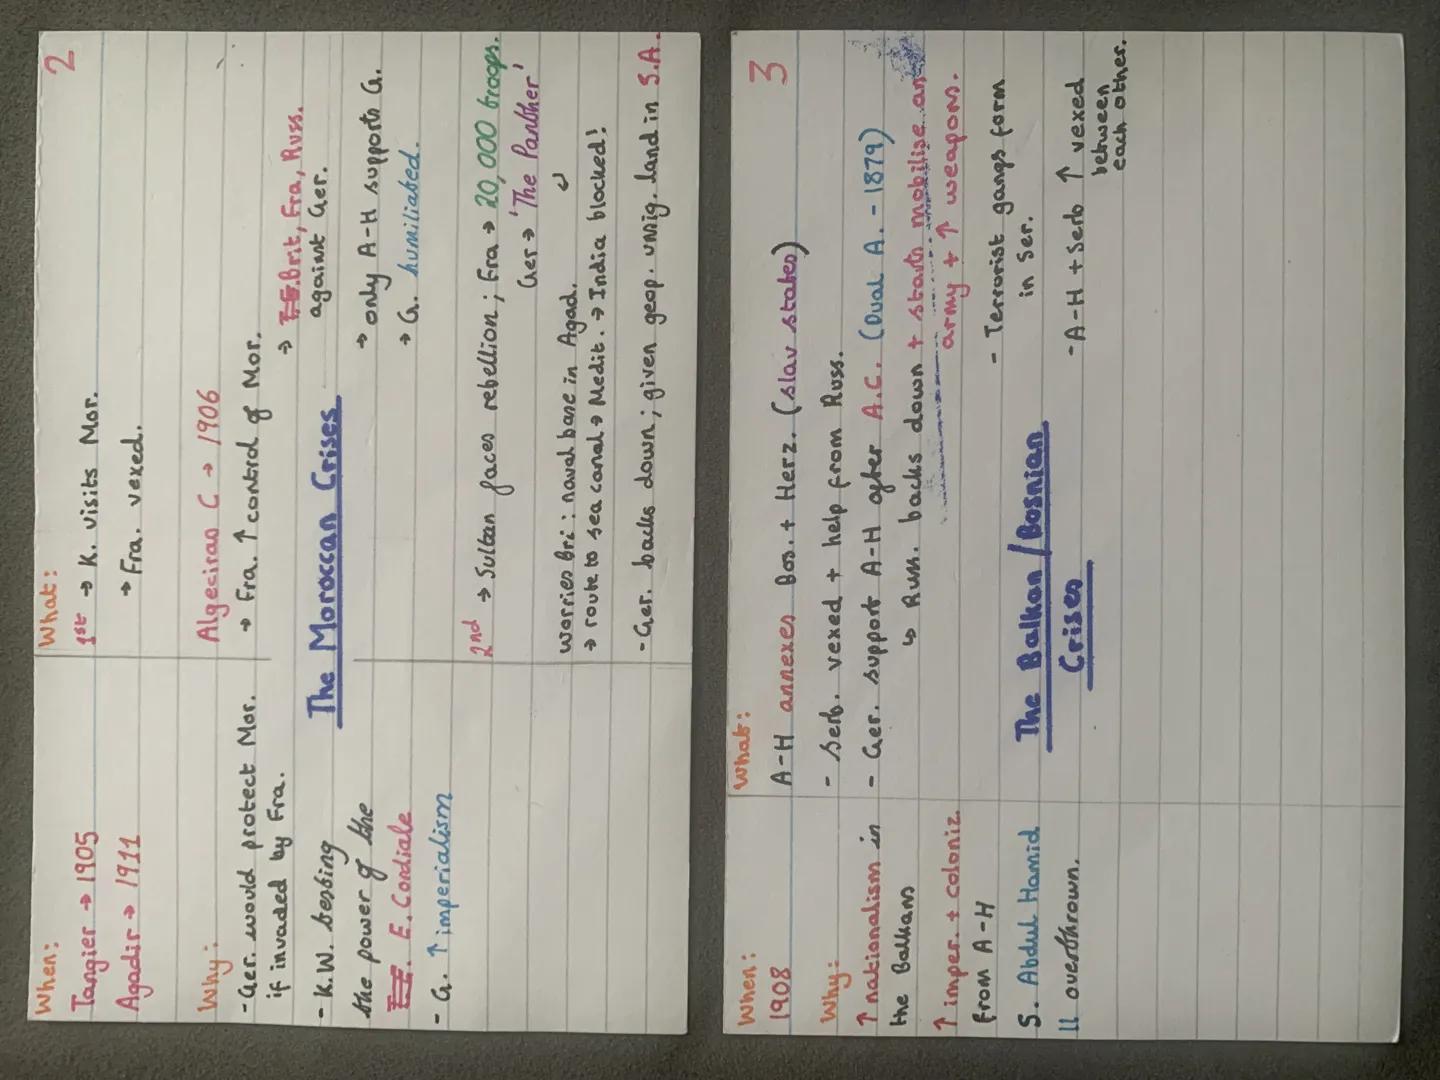 2
When:
Tangier → 1905
Agadir → 1911
Why:
- Ger. would protect Mor.
if invaded by Fra.
- K.W. testing
the power of the
E. Cordiale
- G. ↑ imperialism
The Moroccan Crises
What:
1st → K. visits Mor.
→ Fra. vexed.
Algeciras C → 1906
→ Fra. ↑ control of Mor.
→ Brit, Fra, Russ.
against Ger.
→ only A-H supports G.
→ G. humiliated.
2nd → Sultan faces rebellion; Fra → 20,000 troops.
Ger → 'The Panther'
worries Bri: naval base in Agad.
→ route to sea canal → Medit. → India blocked!
- Ger. backs down; given geop. unsig. land in S.A.
3
When:
1908
Why:
↑ nationalism in
the Balkans
↑ imper. + coloniz.
from A-H
S. Abdul Hamid
II overthrown.
The Balkan/Bosnian
Crises
What:
A-H annexes Bos. + Herz. (slav states)
- Serb. vexed + help from Russ.
- Ger. support A-H after A.C. (Dual A. - 1879)
↳ Russ. backs down + starts mobilise an
army + ↑ weapons.
- Terrorist gangs form
in Ser.
- A-H + Serb ↑ vexed
between
each other.